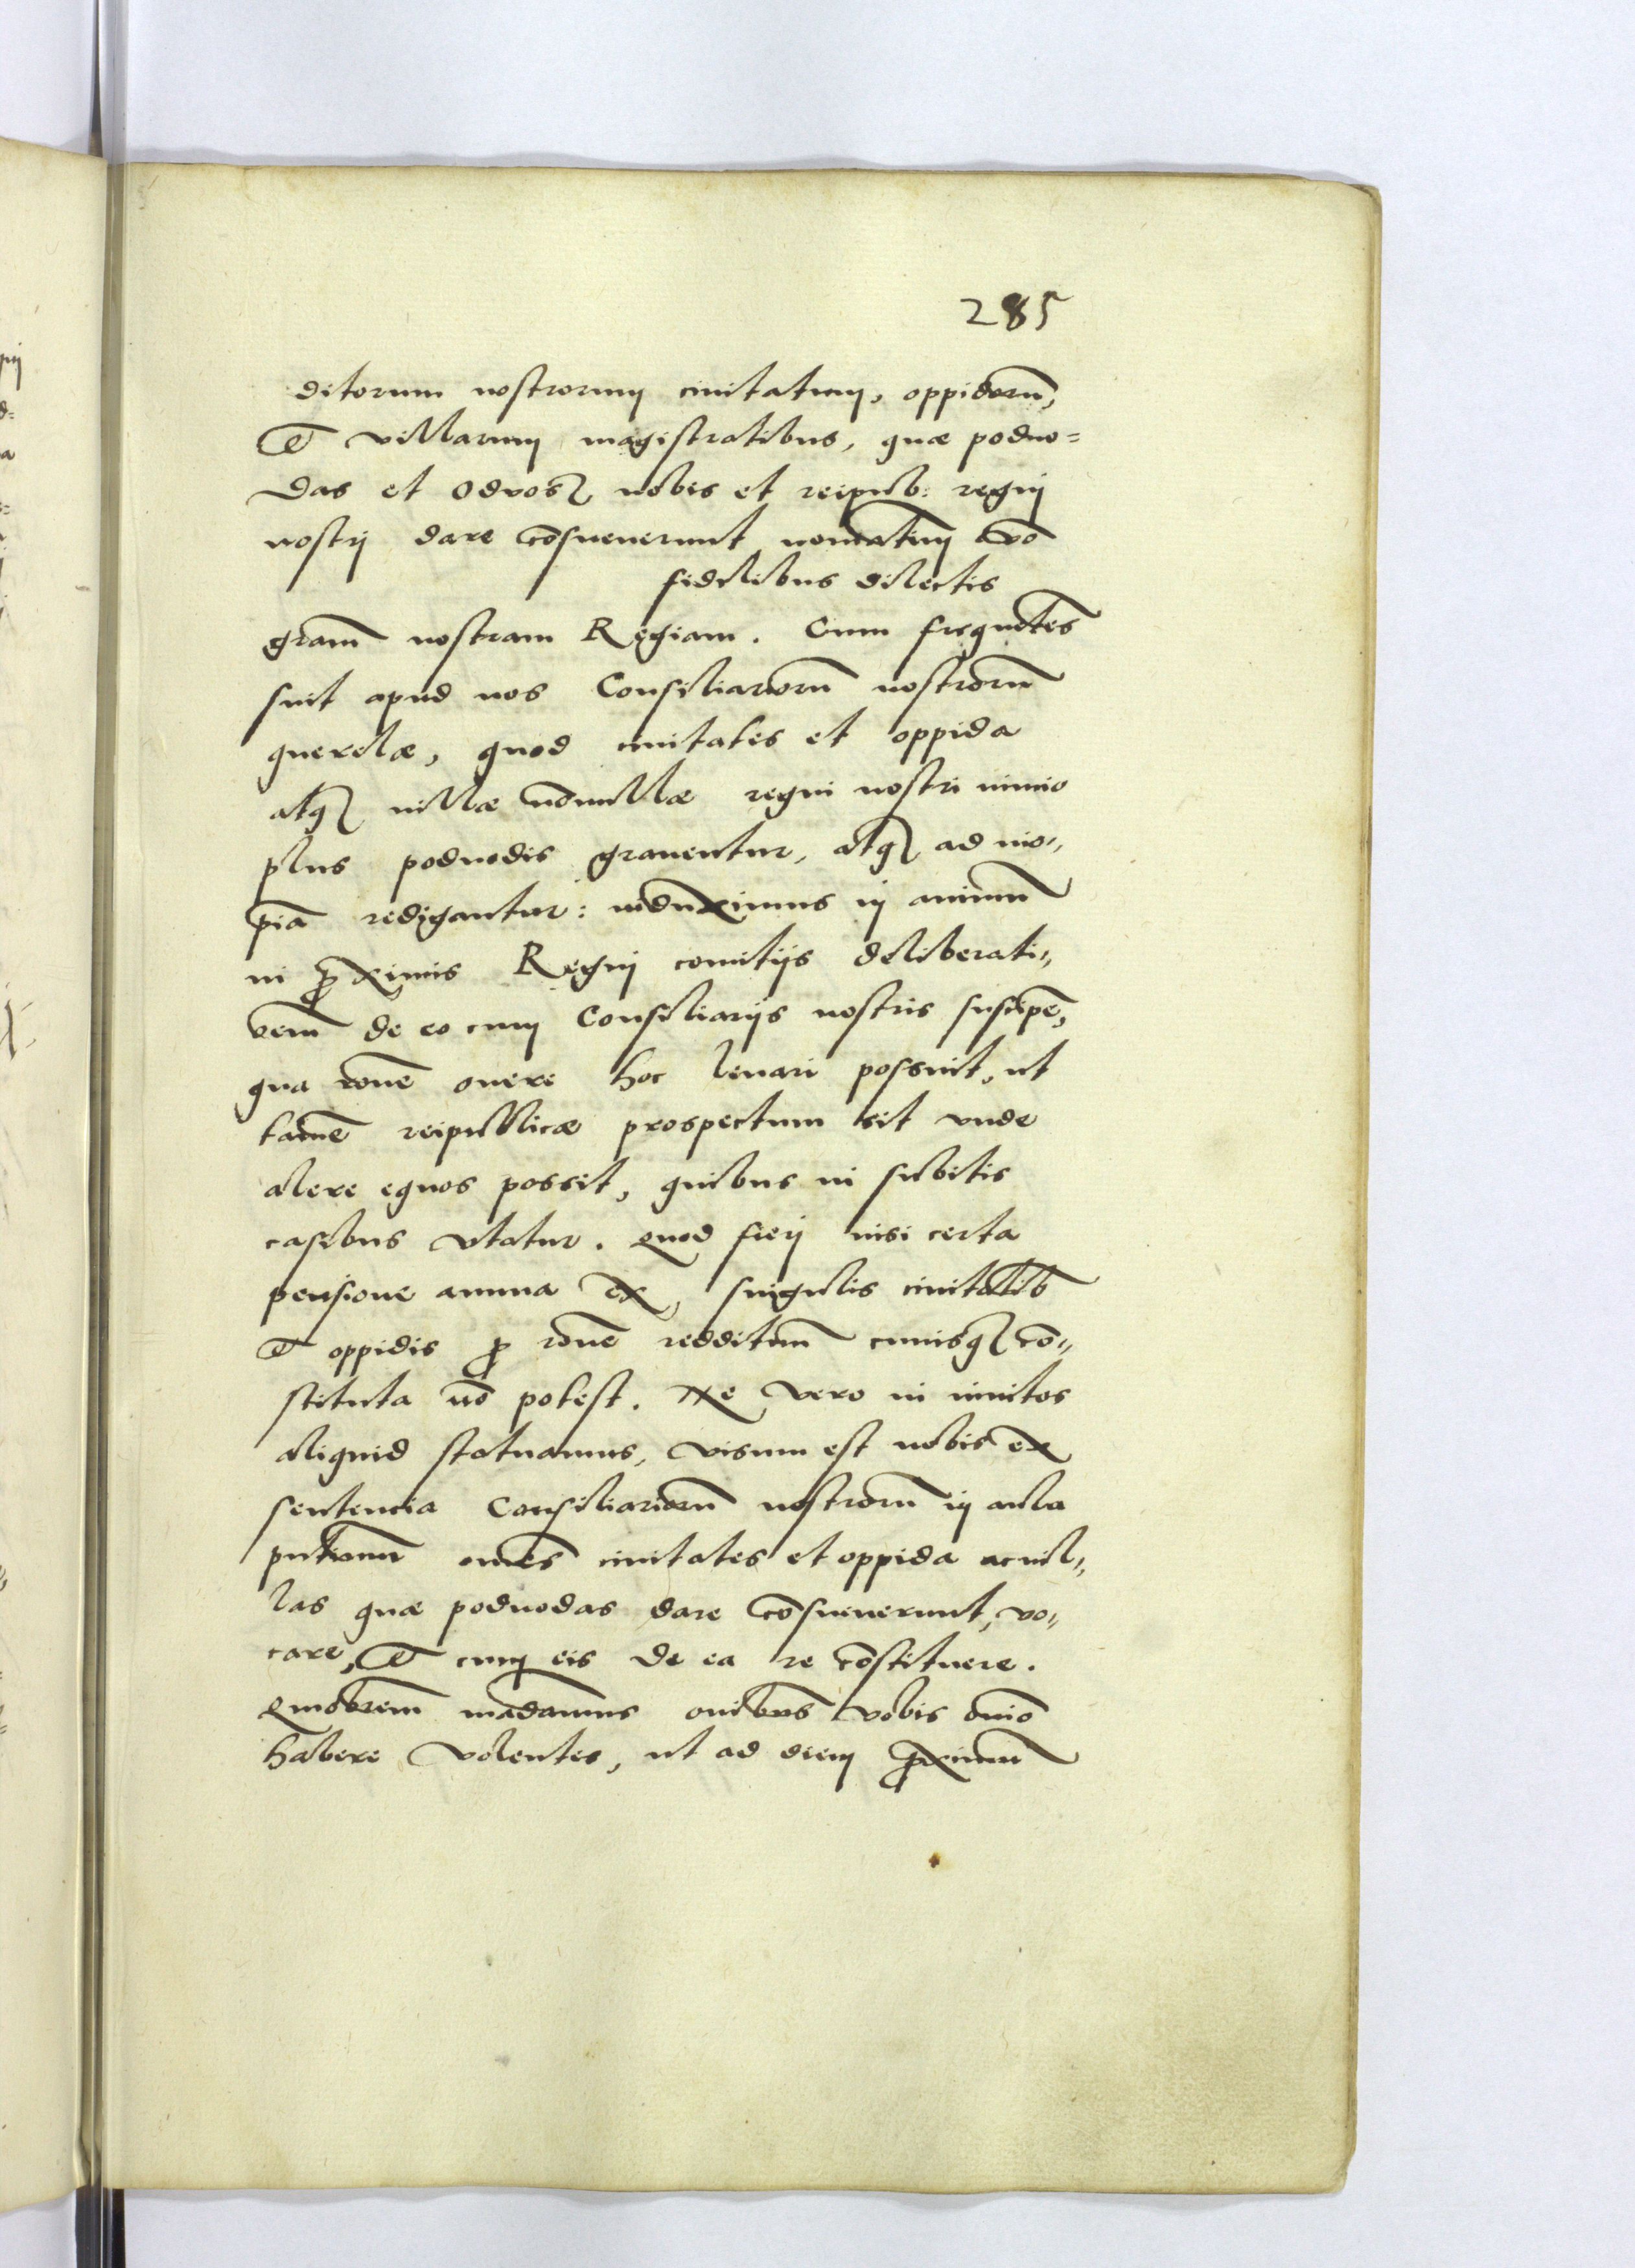 285
ditorum nostrorum ciuitatum, oppidorũ,
et villarum magistratibus, quæ poduo=
das et oduosz nobis et reipub: regnj
nostrj dare cõsueuerunt nomĩatim võ
fidelibus dilectis
grãm nostram Regiam. Cum frequẽtes
sint apud nos Consiliariorũ nostrorũ
querelæ, quod ciuitates et oppida
atq villæ nõnullæ regni nostri nimio
plus poduodis grauentur, atq ad ino„
piã redigantur: induximus in animũ
in proximis Regnj comitijs deliberati„
onem de eo cum Consiliarijs nostris suscipe,
qua rõne onere hoc leuari possint, ut
tamẽ reipublicæ prospectum sit vnde
alere equos possit, quibus in subitis
casibus vtatur. Quod fierj nisi certa
pensione annua ex singulis ciuitatib
et oppidis pro rõne reddituũ cuiusq cõ„
stituta nõ potest. Ne vero in inuitos
aliquid statuamus, visum est nobis ex
sententia Consiliariorũ nostrorũ in aula
pñtium omẽs ciuitates et oppida ac uil„
las quæ poduodas dare cõsueuerunt, vo„
care, et cum eis de ea re cõstituere.
Quãobrem mãdamus omibus vobis omĩo
habere volentes, ut ad diem proximũ